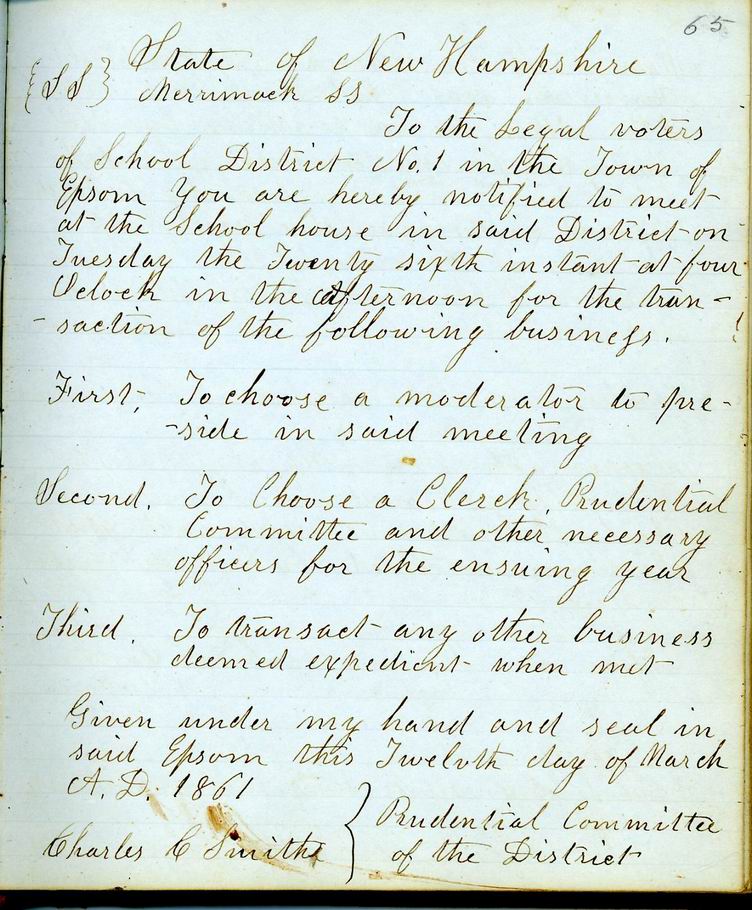 65
State of New Hampshire
{SS} Merrimack SS
To the Legal voters
of School District No. 1 in the Town of
Epsom You are hereby notified to meet
at the School house in said District on
Tuesday the Twenty sixth instant at four
Oclock in the afternoon for the tran-
-saction of the following business.
First, To choose a moderator to pre-
-side in said meeting
Second. To Choose a Clerck, Prudential
Committee and other necessary
officers for the ensuing year
Third. To transact any other business
deemed expedient when met
Given under my hand and seal in
said Epsom this Twelvth day of March
A. D. 1861
Charles C Smith } Prudential Committee
of the District